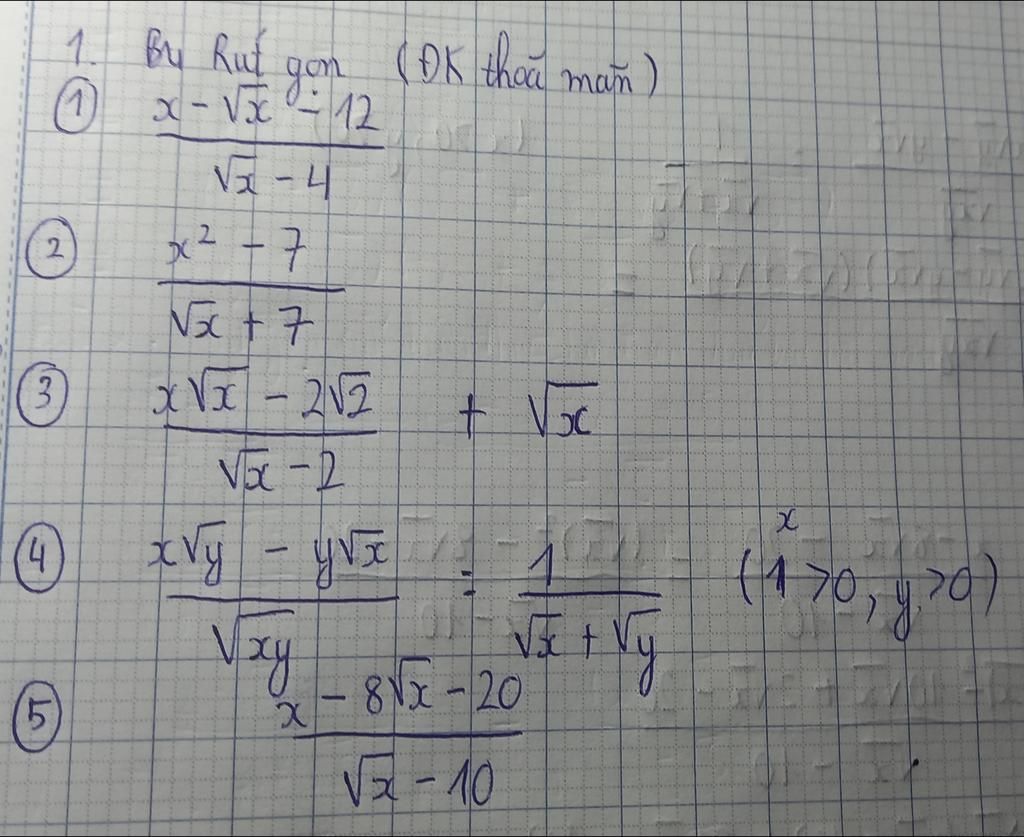 1. By Rút gọn (ĐK thoã mãn)
① (x - √x - 12)/(√x - 4)
② (x² - 7)/(√x + 7)
③ (x√x - 2√2)/(√x - 2) + √x
④ (x√y - y√x)/√(xy) : 1/(√x + √y) (x > 0, y > 0)
⑤ (x - 8√x - 20)/(√x - 10)